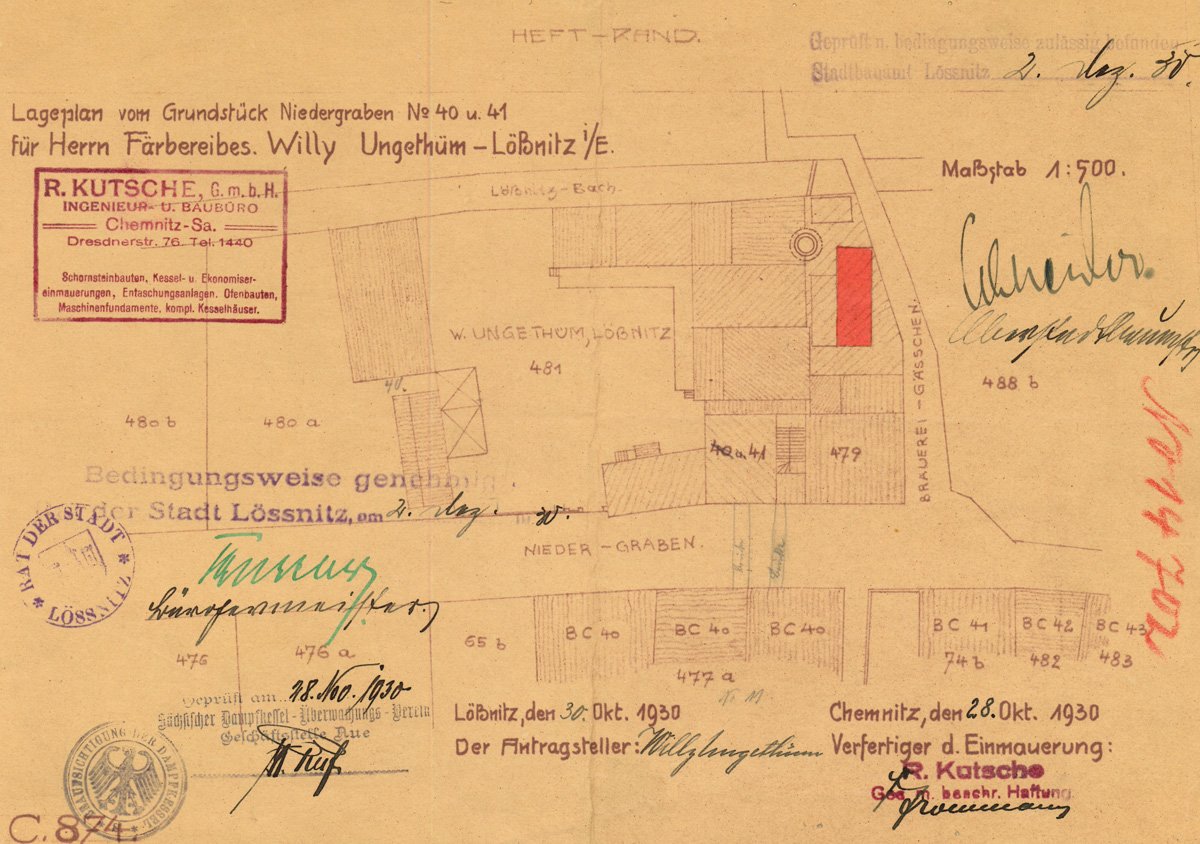 HEFT-RAND.
Geprüft u. bedingungsweise zulässig befunden
Stadtbauamt Lössnitz 2. Dez. 30
Lageplan vom Grundstück Niedergraben No 40 u. 41
für Herrn Färbereibes. Willy Ungethüm – Lößnitz i/E.
Maßstab 1:500.
R. KUTSCHE, G.m.b.H.
INGENIEUR- U. BAUBÜRO
Chemnitz-Sa.
Dresdnerstr. 76. Tel. 1440
Schornsteinbauten, Kessel- u. Ekonomiser-
einmauerungen, Entaschungsanlagen. Ofenbauten,
Maschinenfundamente, kompl. Kesselhäuser.
Lößnitz-Bach.
W. UNGETHÜM, LÖßNITZ
481
BRAUEREI-GÄSSCHEN.
488 b
40.
480 b
480 a
40 u. 41
479
Bedingungsweise genehmig
der Stadt Lössnitz, am 2. Dez. 30.
RAT DER STADT
LÖSSNITZ
NIEDER-GRABEN.
Bürgermeister.
476
476 a
65 b
BC 40
BC 40
BC 40
477 a
BC 41
74 b
BC 42
482
BC 43
483
Geprüft am 28. Nov. 1930
Sächsischer Dampfkessel-Überwachungs-Verein
Geschäftsstelle Aue
Lößnitz, den 30. Okt. 1930
Der Antragsteller: Willy Ungethüm
Chemnitz, den 28. Okt. 1930
Verfertiger d. Einmauerung:
R. Kutsche
Ges. m. beschr. Haftung